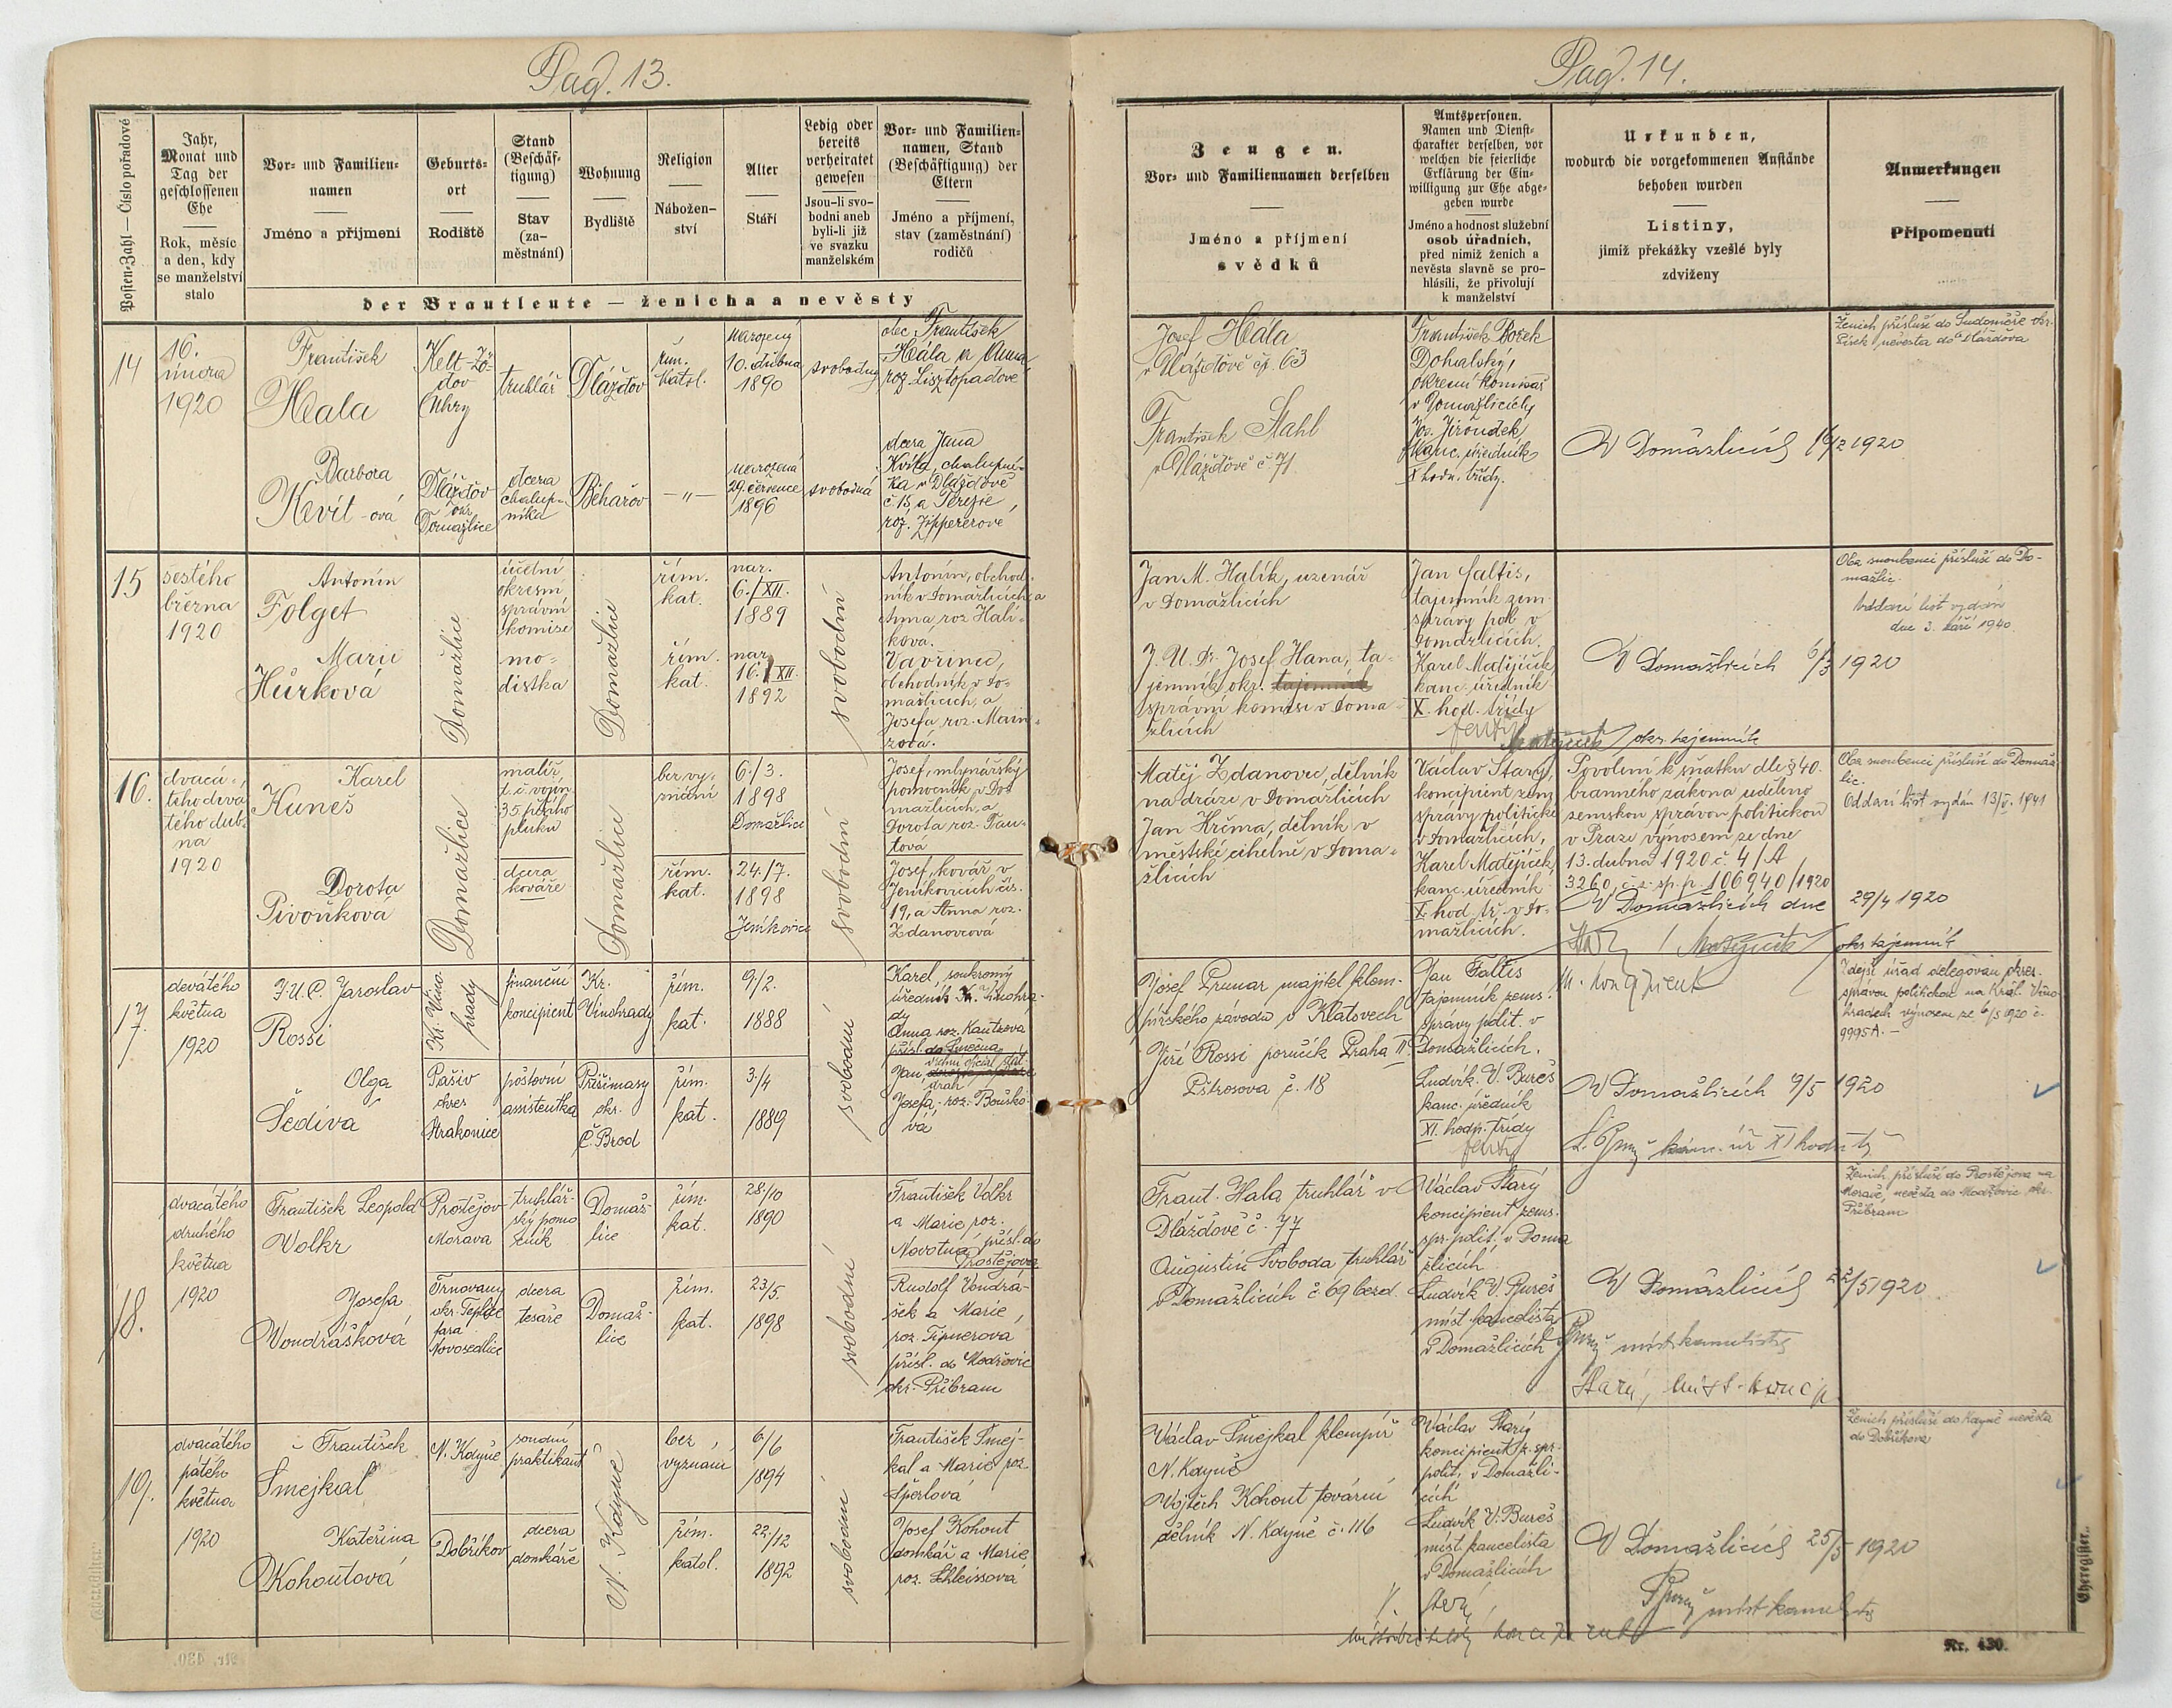 Pag. 13.
Posten-Zahl — Číslo pořadové
Jahr,
Monat und
Tag der
geschlossenen
Ehe
Rok, měsíc
a den, kdy
se manželství
stalo
Vor- und Familien-
namen
Jméno a příjmení
Geburts-
ort
Rodiště
Stand
(Beschäf-
tigung)
Stav
(za-
městnání)
Wohnung
Bydliště
Religion
Nábožen-
ství
Alter
Stáří
Ledig oder
bereits
verheiratet
gewesen
Jsou-li svo-
bodni aneb
byli-li již
ve svazku
manželském
Vor- und Familien-
namen, Stand
(Beschäftigung) der
Eltern
Jméno a příjmení,
stav (zaměstnání)
rodičů
der Brautleute — ženicha a nevěsty
14
16.
února
1920
František
Hala
Uhry
truhlář
Dlážďov
řím.
katol.
narozený
10. dubna
1890
svobodný
otec František
Hála a Anna
roz. Lisztopadové
Barbora
Kvit-ová
Dlážďov
okr.
Domažlice
dcera
chalup-
níka
Běhařov
—„—
narozená
29. července
1896
svobodná
dcera Jana
Kvita, chalupní-
ka v Dlážďově
č. 15, a Terezie
roz. Zippererové
15
šestého
března
1920
Antonín
Folget
Marie
Hůrková
Domažlice
účetní
okresní
správní
komise
mo-
distka
Domažlice
řím.
kat.
řím.
kat.
nar.
6./XII.
1889
nar.
16./XII.
1892
svobodní
Antonín, obchod-
ník v Domažlicích, a
Anna roz. Halí-
kova.
Vavřinec,
obchodník v Do-
mažlicích, a
Josefa, roz. Main-
zová.
16.
dvacá-
tého devá-
tého dub-
na
1920
Karel
Kuneš
Dorota
Pivoňková
Domažlice
malíř
t. č. vojín
35. pěšího
pluku
dcera
kováře
Domažlice
bez vy-
znání
řím.
kat.
6./3.
1898
Domažlice
24./7.
1898
Jeníkovice
svobodní
Josef, mlynářský
pomocník v Do-
mažlicích, a
Dorota roz. Tau-
tová
Josef, kovář v
Jeníkovicích čís.
19, a Anna roz.
Zdanovcová
17.
devátého
května
1920
J.U.C. Jaroslav
Rossi
Olga
Šedivá
Kr. Vino-
hrady
Pašiv
okres
Strakonice
finanční
koncipient
poštovní
assistentka
Kr.
Vinohrady
Přišimasy
okr.
Č. Brod
řím.
kat.
řím.
kat.
9/2.
1888
3./4
1889
svobodní
Karel, soukromý
úředník Kr. Vinohra-
dy
Anna roz. Kautzová
přísl. do Smečna
Jan,
drah
Josefa, roz. Bouško-
vá
18.
dvacátého
druhého
května
1920
František Leopold
Volkr
Josefa
Vondrášková
Prostějov
Morava
Trnovany
okr. Teplice
fara
Novosedlice
truhlář-
ský pomo
cník
dcera
tesaře
Domaž-
lice
Domaž-
lice
řím.
kat.
řím.
kat.
28./10
1890
23/5
1898
svobodní
František Volkr
a Marie roz.
Novotná, přísl. do
Prostějova
Rudolf Vondrá-
šek a Marie,
roz. Tipnerova
přísl. do Modřovic
okr. Příbram
19.
dvacátého
pátého
května
1920
František
Šmejkal
Kateřina
Kohoutová
N. Kdyně
Dobříkov
soudní
praktikant
dcera
domkáře
N. Kdyně
bez
vyznání
řím.
katol.
6/6
1894
22./12
1892
svobodní
František Šmej-
kal a Marie roz.
Šperlová
Josef Kohout
domkář a Marie
roz. Schleissova
Pag. 14.
Zeugen.
Vor- und Familiennamen derselben
Jméno a příjmení
svědků
Amtspersonen.
Namen und Dienst-
charakter derselben, vor
welchen die feierliche
Erklärung der Ein-
willigung zur Ehe abge-
geben wurde
Jméno a hodnost služební
osob úřadních,
před nimiž ženich a
nevěsta slavně se pro-
hlásili, že přivolují
k manželství
Urkunden,
wodurch die vorgekommenen Anstände
behoben wurden
Listiny,
jimiž překážky vzešlé byly
zdviženy
Anmerkungen
Připomenutí
Josef Hála
v Dlážďově čp. 63
František Stahl
v Dlážďově č. 71.
František Bořek
Dohalský,
okresní komisař
v Domažlicích,
Jos. Jiroudek,
kanc. úředník
X hodn. třídy.
V Domažlicích 16/2 1920
Ženich přísluší do Sudoměře okr.
Písek, nevěsta do Dlážďova
Jan M. Halík, uzenář
v Domažlicích
J. U. Dr. Josef Hana, ta-
jemník okr. tajemník
správní komise v Doma-
žlicích
Jan Faltis,
tajemník zem.
správy pol. v
Domažlicích.
Karel Matějíček
kanc. úředník
X. hod. třídy
V Domažlicích 6/3 1920
Matějíček / okr. tajemník
Oba snoubenci přísluší do Do-
mažlic.
Oddací list vydán
dne 3. září 1940.
Matěj Zdanovec, dělník
na dráze v Domažlicích
Jan Hrčma, dělník v
městské cihelně v Doma-
žlicích
Václav Starý,
koncipient zem.
správy politické
v Domažlicích,
Karel Matějíček,
kanc. úředník
X. hod. tř. v Do-
mažlicích.
Povolení k sňatku dle § 40.
branného zákona uděleno
zemskou správou politickou
v Praze výnosem ze dne
13. dubna 1920 č. 4/A
3260, č. sp. p. 106940/1920
V Domažlicích dne 29/4 1920
Starý / Matějíček / okr. tajemník
m. koncipient
Oba snoubenci přísluší do Domaž-
lic.
Oddací list vydán 13/V. 1941
Josef Prunar majitel klem-
pířského závodu v Klatovech
Jiří Rossi poručík Praha II.
Pštrosova č. 18
Jan Faltis
tajemník zems.
správy polit. v
Domažlicích.
Ludvík V. Bureš
kanc. úředník
XI. hodn. třídy
V Domažlicích 9/5 1920
Zdejší úřad delegován okres.
správou politickou na Král. Vino-
hradech výnosem ze 6/5 1920 č.
9995 A. —
Frant. Hala truhlář v
Dlážďově č. 77
Augustin Svoboda truhlář
v Domažlicích č. 69 bezd.
Václav Starý
koncipient zems.
spr. polit. v Doma
žlicích
Ludvík V. Bureš
míst. kancelista
v Domažlicích
V Domažlicích 22/5 1920
Bureš míst. kancelista
Starý, míst. koncip.
Ženich přísluší do Prostějova na
Moravě, nevěsta do Modřovic okr.
Příbram
Václav Šmejkal klempíř
N. Kdyně
Vojtěch Kohout tovární
dělník N. Kdyně č. 116
Václav Starý
koncipient z. spr.
polit. v Domažli-
cích
Ludvík V. Bureš
míst. kancelista
v Domažlicích
V Domažlicích 25/5 1920
Bureš míst. kancelista
Starý,
místodržitelský koncipient
Ženich přísluší do Kdyně nevěsta
do Dobříkova
Eheregister.
Nr. 430.